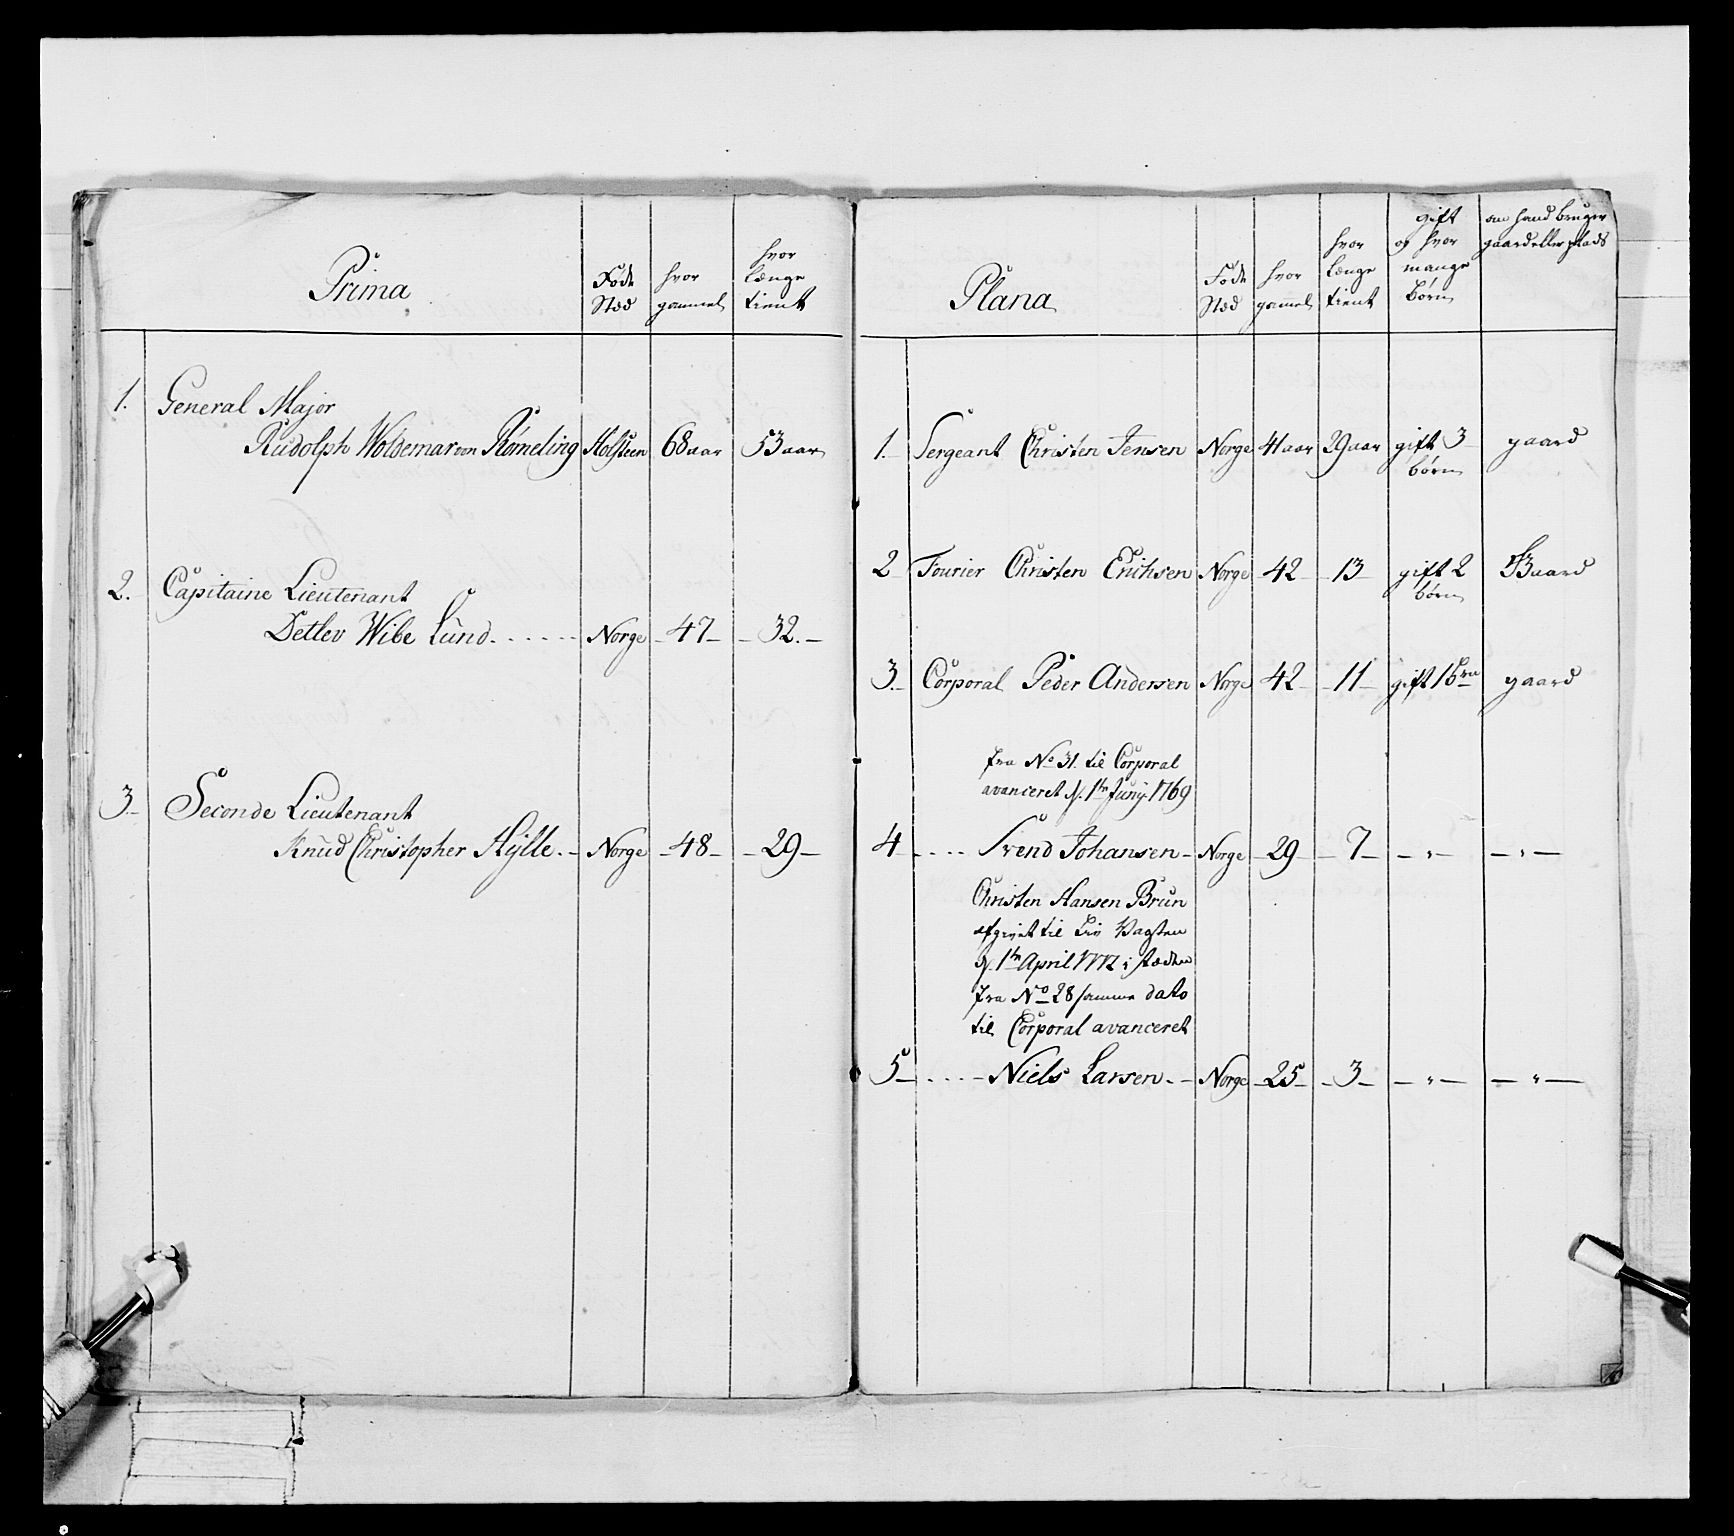 Prima
Føde Stæd
hvor gammel
hvor længe tient
1. General Major
Rudolph Woldemar von Rømeling Holsteen 68 aar 53 aar
2. Capitaine Lieutenant
Detlev Wibe Lund Norge 47 32.
3. Seconde Lieutenant
Knud Christopher Hylle Norge 48 29
Plana
Føde Stæd
hvor gamel
hvor længe tient
gift og hvor mange børn
om hand bruger gaard eller plads
1. Sergeant Christen Jensen Norge 41 aar 29 aar gift 3 børn gaard
2 Fourier Christen Erichsen Norge 42 13 gift 2 børn Gaard
3. Corporal Peder Andersen Norge 42 11 gift 1 gaard
fra No 31. til Corporal
avanceret d. 1tn Junij 1769
4 Svend Johansen Norge 29 7 " "
Christen Hansen Brun
afgivet til Liv Vagten
d. 1tn April 1772 i stædten
fra No 28 samme dato
til Corporal avanceret
5 Niels Larsen Norge 25 3 " "